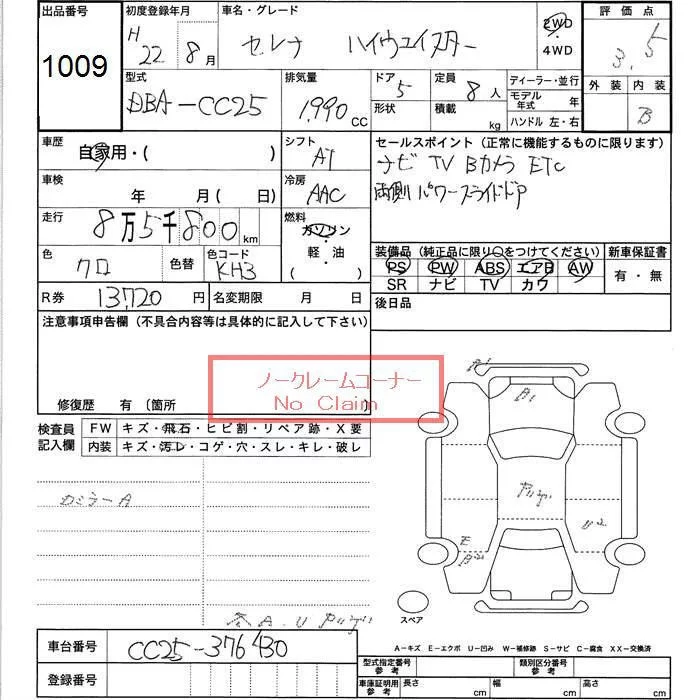 出品番号
1009
初度登録年月
H 22 年 8月
車名・グレード
セレナ ハイウェイスター
2WD
・
4WD
評価点
3.5
外装 内装
B
型式
DBA-CC25
排気量
1,990 CC
ドア 5
形状
定員 8人
積載 kg
ディーラー・並行
モデル年式 年
ハンドル 左・右
車歴
自家用・( )
シフト
AT
セールスポイント(正常に機能するものに限ります)
ナビ TV Bカメラ ETC
両側パワースライドドア
車検
年 月(日)
冷房
AAC
走行
8万5千800km
燃料
ガソリン
・
軽・油
( )
色
クロ
色替
色コード
KH3
装備品(純正品に限り○をつけてください)
PS PW ABS エアB AW
SR ナビ TV カワ
新車保証書
有・無
R券 13,720円
名変期限 月 日
後日品
注意事項申告欄(不具合内容等は具体的に記入して下さい)
ノークレームコーナー
No Claim
修復歴 有(箇所
検査員記入欄
FW キズ・飛石・ヒビ割・リペア跡・X要
内装 キズ・汚レ・コゲ・穴・スレ・キレ・破レ
カミラーA
A.U
A1
A1
U2
E
B2
スペア
A-キズ E-エクボ U-凹み W-補修跡 S-サビ C-腐食 XX-交換済
車台番号
CC25-376430
登録番号
型式指定番号 参考
類別区分番号 参考
車庫証明用 参考
長さ cm
幅 cm
高さ cm